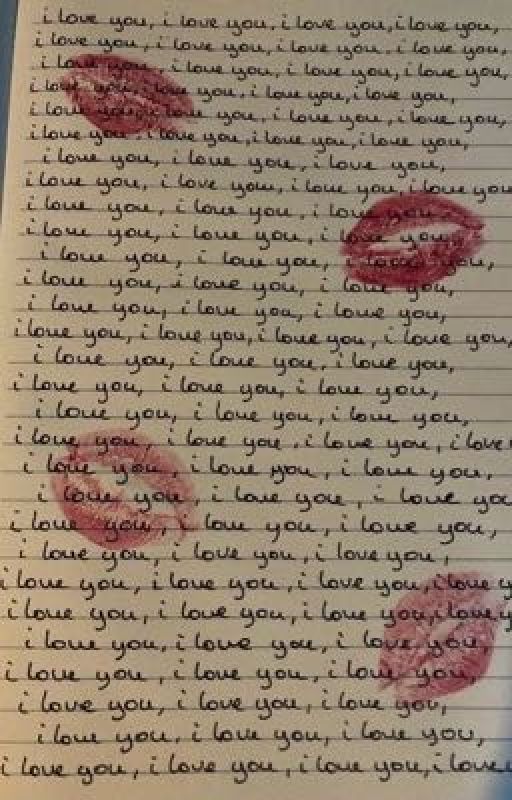 i love you, i love you, i love you, i love you,
i love you, i love you, i love you, i love you,
i love you, i love you, i love you, i love you,
i love you, i love you, i love you, i love you,
i love you, i love you, i love you, i love you,
i love you, i love you, i love you, i love you,
i love you, i love you, i love you,
i love you, i love you, i love you, i love you
i love you, i love you, i love you,
i love you, i love you, i love you,
i love you, i love you, i love you,
i love you, i love you, i love you,
i love you, i love you, i love you,
i love you, i love you, i love you, i love you,
i love you, i love you, i love you,
i love you, i love you, i love you,
i love you, i love you, i love you,
i love you, i love you, i love you, i love
i love you, i love you, i love you,
i love you, i love you, i love yo
i love you, i love you, i love you,
i love you, i love you, i love you,
i love you, i love you, i love you, i love y
i love you, i love you, i love you, i love y
i love you, i love you, i love you,
i love you, i love you, i love you,
i love you, i love you, i love you,
i love you, i love you, i love you,
i love you, i love you, i love you, i love